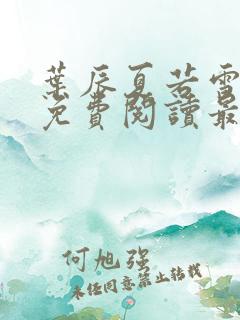 葉辰夏若雪
免費閱讀最
何旭强
未经同意禁止转载